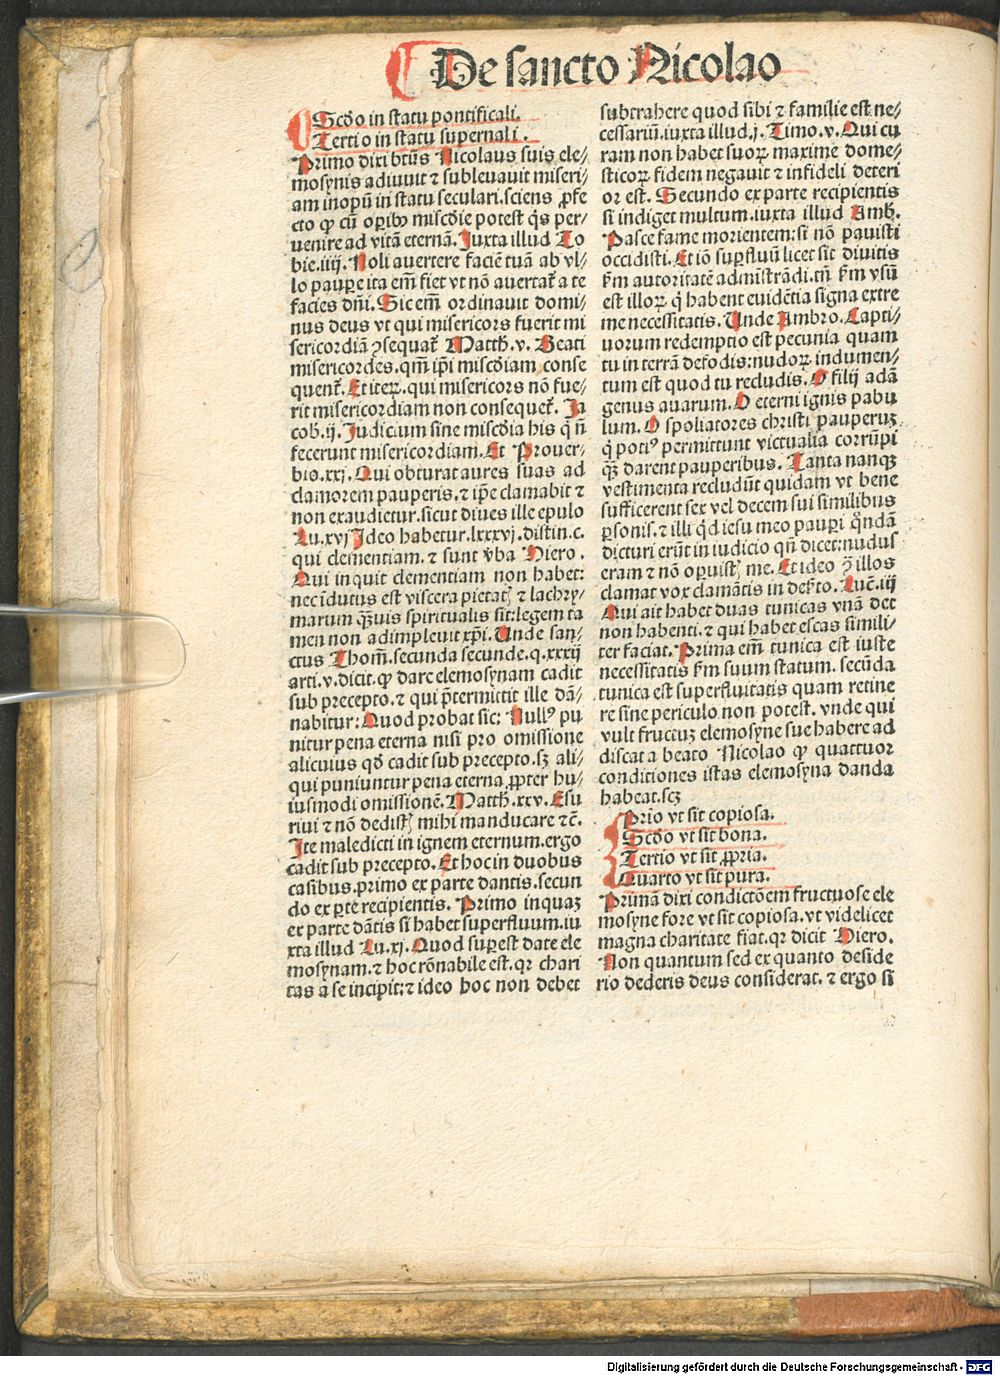 De sancto Nicolao
Scd̄o in statu pontificali.
Tertio in statu supernali.
Primo dixi btūs Nicolaus suis ele⸗
mosynis adiuuit ⁊ subleuauit miseri⸗
am inopū in statu seculari. sciens ꝓfe
cto ꝙ cū oꝑibꝰ misc̄die potest q̇s per⸗
uenire ad vitā eternā. Iuxta illud To
bie. iiij. Noli auertere faciē tuā ab vl⸗
lo pauꝑe ita em̄ fiet vt nō auertat᷑ a te
facies dn̄i. Sic em̄ ordinauit domi⸗
nus deus vt qui misericors fuerit mi
sericordiā ꝯsequat᷑ Matth̄. v. Beati
misericordes. qm̄ ip̄i misc̄diam conse
quent᷑. Et iteꝝ. qui misericors nō fue⸗
rit misericordiam non consequet᷑. Ja
cob̄. ij. Judicium sine misc̄dia his q̇ n̄
fecerunt misericordiam. Et Prouer⸗
bio. xxj. Qui obturat aures suas ad
clamorem pauperis. ⁊ ip̄e clamabit ⁊
non exaudietur. sicut diues ille epulo
Lu. xvj Ideo habetur. lxxxvj. distin. c.
qui clementiam. ⁊ sunt v̄ba Hiero.
Qui inquit clementiam non habet:
nec īdutus est viscera pietatꝭ ⁊ lachry⸗
marum qȝuis spiritualis sit: legem ta
men non adimpleuit xp̄i. Unde san⸗
ctus Thom̄. secunda secunde. q. xxxij
arti. v. dicit. ꝙ dare elemosynam cadit
sub precepto. ⁊ qui p̄termittit ille dā⸗
nabitur: Quod probat sic: Nullꝰ pu
nitur pena eterna nisi pro omissione
alicuius qd̄ cadit sub precepto. sȝ ali⸗
qui puniuntur pena eterna ꝓpter hu⸗
iusmodi omissionē. Matth̄. xxv. Esu
riui ⁊ nō dedistꝭ mihi manducare ⁊c̄.
Ite maledicti in ignem eternum. ergo
cadit sub precepto. Et hoc in duobus
casibus. primo ex parte dantis. secun
do ex ꝑte recipientis. Primo inquaȝ
ex parte dātis si habet superfluum. iu
xta illud Lu. xj. Quod suꝑest date ele
mosynam. ⁊ hoc rōnabile est. qꝛ chari
tas a se incipit: ⁊ ideo hoc non debet
subtrahere quod sibi ⁊ familie est ne⸗
cessariū. iuxta illud. j. Timo. v. Qui cu
ram non habet suoꝝ maxime dome⸗
sticoꝝ fidem negauit ⁊ infideli deteri
or est. Secundo ex parte recipientis
si indiget multum. iuxta illud Amb̄.
Pasce fame morientem: si nō pauisti
occidisti. Et iō suꝑfluū licet sit diuitis
ẜm autoritatē admīstrādi. tn̄ ẜm vsū
est illoꝝ q̇ habent euidētia signa extre
me necessitatis. Unde Ambro. Capti⸗
uorum redemptio est pecunia quam
tu in terrā defodis: nudoꝝ indumen⸗
tum est quod tu recludis. O filij adā
genus auarum. O eterni ignis pabu
lum. O spoliatores christi pauperuȝ
q̇ potiꝰ permittunt victualia corrūpi
qȝ darent pauperibus. Tanta nanqȝ
vestimenta recludūt quidam vt bene
sufficerent sex vel decem sui similibus
ꝑsonis. ⁊ illi q̇d iesu meo pauꝑi qn̄dā
dicturi erūt in iudicio qn̄ dicet: nudus
eram ⁊ nō oꝑuistꝭ me. Et ideo ꝯ̄ illos
clamat vox clamātis in deẜto. Luc̄. iij
Qui ait habet duas tunicas vnā det
non habenti. ⁊ qui habet escas simili⸗
ter faciat. Prima em̄ tunica est iuste
necessitatis ẜm suum statum. secūda
tunica est superfluitatis quam retine
re sine periculo non potest. vnde qui
vult fructuȝ elemosyne sue habere ad
discat a beato Nicolao ꝙ quattuor
conditiones istas elemosyna danda
habeat. scȝ
Prīo vt sit copiosa.
Scd̄o vt sit bona.
Tertio vt sit ꝓpria.
Quarto vt sit pura.
Primā dixi condictōem fructuose ele
mosyne fore vt sit copiosa. vt videlicet
magna charitate fiat. qꝛ dicit Hiero.
Non quantum sed ex quanto deside
rio dederis deus considerat. ⁊ ergo si
Digitalisierung gefördert durch die Deutsche Forschungsgemeinschaft - DFG